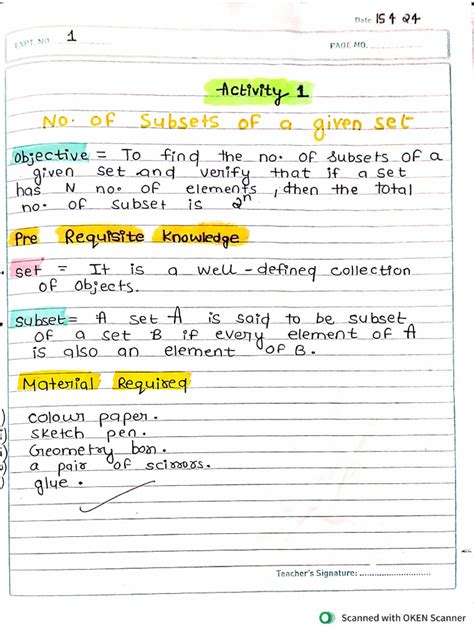 Date 15 4 24
EXPT. NO. 1
PAGE NO.
Activity 1
No. of Subsets of a given set
Objective = To find the no. of subsets of a
given set and verify that if a set
has N no. of elements, then the total
no. of subset is 2ⁿ
Pre Requisite Knowledge
set = It is a well-defined collection
of Objects.
subset = A set A is said to be subset
of a set B if every element of A
is also an element of B.
Material Required
colour paper.
sketch pen.
Geometry box.
a pair of scissors.
glue.
Teacher's Signature:
Scanned with OKEN Scanner